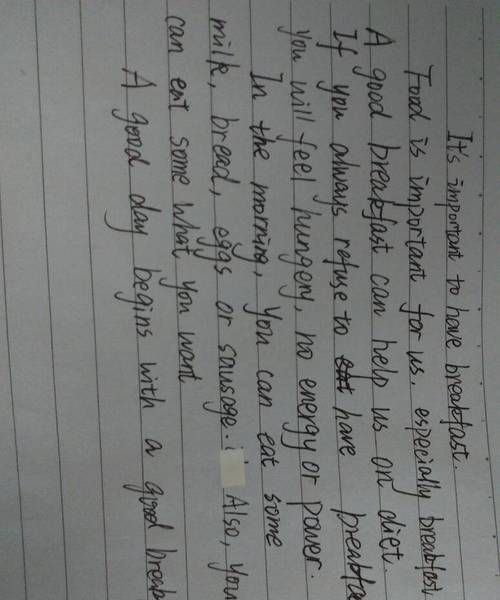 It's important to have breakfast.
Food is important for us, especially breakfast
A good breakfast can help us on diet.
If you always refuse to have breakfa
you will feel hungery, no energy or power.
In the morning, you can eat some
milk, bread, eggs or sausage. Also, you
can eat some what you want
A good day begins with a good break